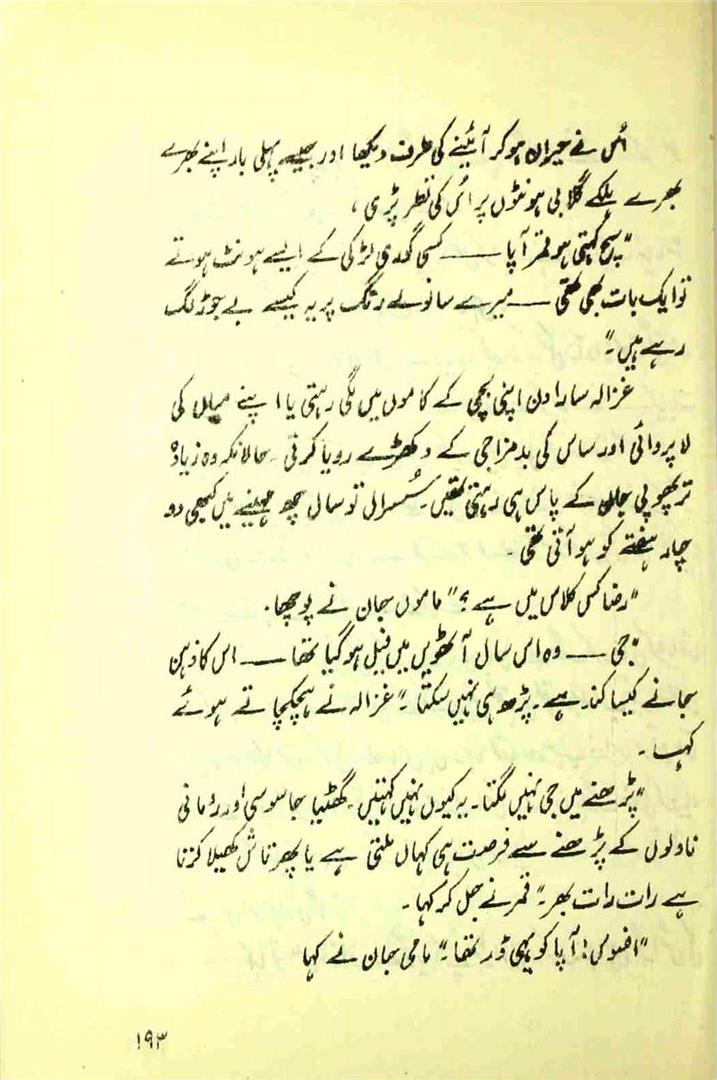 اُس نے حیران ہو کر آئینے کی طرف دیکھا اور جیسے پہلی بار اپنے بھرے
بھرے ہلکے گلابی ہونٹوں پر اُس کی نظر پڑی ،
"سچ کہتی ہو قمر آپا ـــــ کسی گوری لڑکی کے ایسے ہونٹ ہوتے
تو ایک بات بھی تھی ـــ میرے سانولے رنگ پر یہ کیسے بے جوڑ لگ
رہے ہیں ۔"
غزالہ سارا دن اپنی بچی کے کاموں میں لگی رہتی یا اپنے میاں کی
لاپروائی اور ساس کی بدمزاجی کے دکھڑے رویا کرتی ۔ حالانکہ وہ زیادہ
تر پھوپی جان کے پاس ہی رہتی تھیں ۔ سُسرال تو سال چھ مہینے میں کبھی دو
چار ہفتے کو ہو آتی تھی ۔
"رضا کس کلاس میں ہے ؟" ماموں جان نے پوچھا ۔
"جی ـــ وہ اس سال آٹھویں میں فیل ہو گیا تھا ـــ اس کا ذہن
جانے کیسا کند ہے ۔ پڑھ ہی نہیں سکتا ۔" غزالہ نے ہچکچاتے ہوئے
کہا ۔
"پڑھنے میں جی نہیں لگتا ۔ یہ کیوں نہیں کہتیں ۔ گھٹیا جاسوسی اور رومانی
ناولوں کے پڑھنے سے فرصت ہی کہاں ملتی ہے یا پھر تاش کھیلا کرتا
ہے رات رات بھر ۔" قمر نے جل کر کہا ۔
"افسوس ! آپا کو یہی ڈر تھا ۔" مامی جان نے کہا
۱۹۳